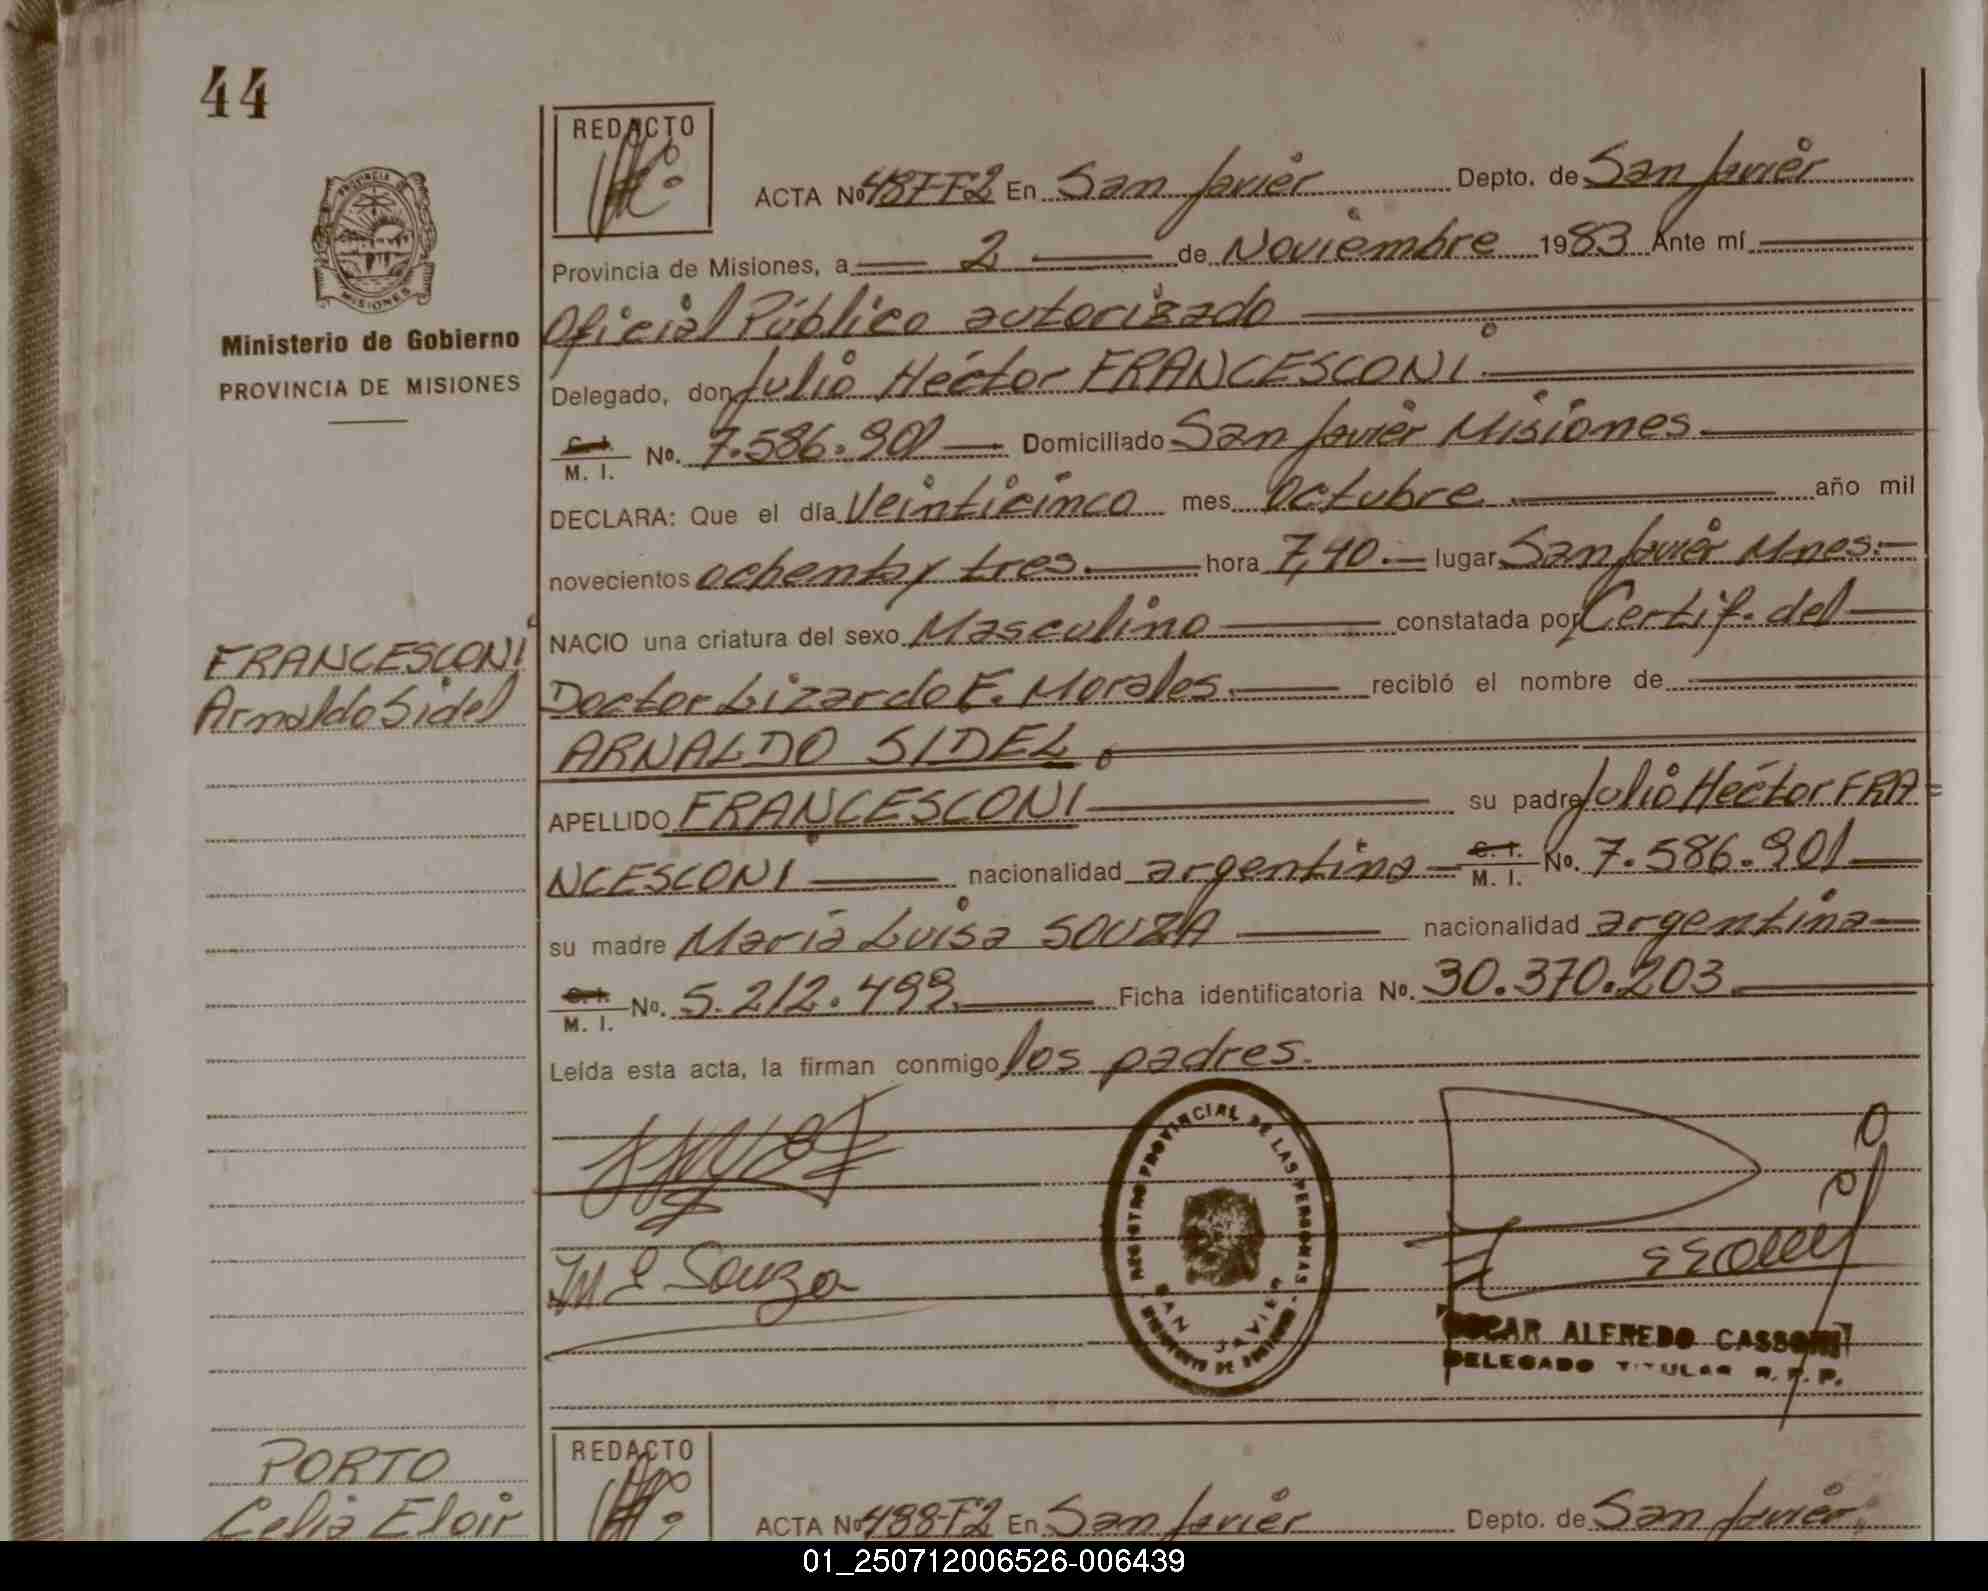 44
REDACTO
ACTA Nº 487-T2 En San Javier Depto. de San Javier
Provincia de Misiones, a 2 de Noviembre 1983 Ante mí
Oficial Público autorizado
Delegado, don Julio Héctor FRANCESCONI
C. I.
M. I. No. 7.586.901 Domiciliado San Javier Misiones
DECLARA: Que el día Veinticinco mes Octubre año mil
novecientos ochenta y tres hora 7,40.- lugar San Javier Mnes.-
NACIO una criatura del sexo Masculino constatada por Certif. del
Doctor Lizardo E. Morales recibió el nombre de
ARNALDO SIDEL.
APELLIDO FRANCESCONI su padre Julio Héctor FRA=
NCESCONI nacionalidad argentina C. I.
M. I. No. 7.586.901
su madre María Luisa SOUZA nacionalidad argentina
C. I.
M. I. No. 5.212.499 Ficha identificatoria No. 30.370.203
Leída esta acta, la firman conmigo los padres.
PROVINCIA DE
MISIONES
Ministerio de Gobierno
PROVINCIA DE MISIONES
FRANCESCONI
Arnaldo Sidel
Souza
REGISTRO PROVINCIAL DE LAS PERSONAS
SAN JAVIER
OSCAR ALFREDO CASSONI
DELEGADO TITULAR R.P.P.
PORTO
Celia Eloir
REDACTO
ACTA Nº 488-T2 En San Javier Depto. de San Javier
01_250712006526-006439